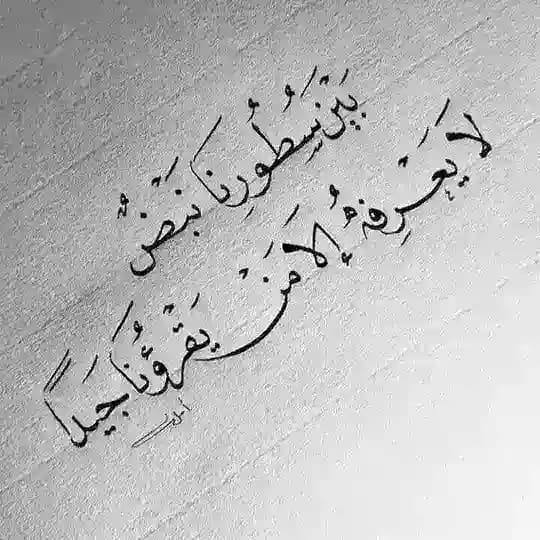 بَيْنَ سُطُورِنَا نَبَضٌ
لَا يَعْرِفهُ إلا مَنْ يَقْرَؤُنَا جَيداً